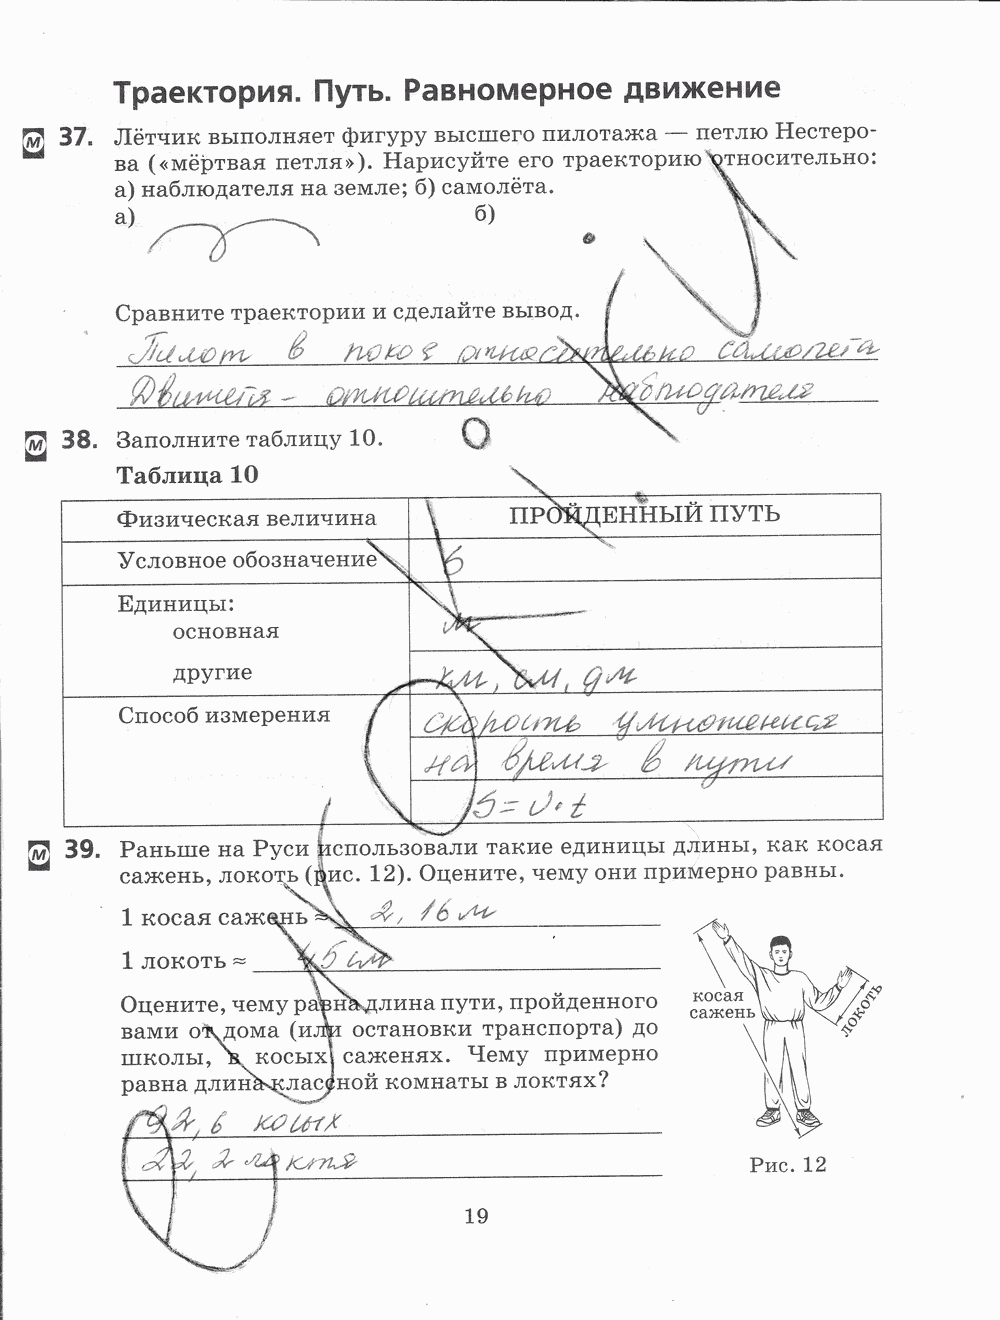 Траектория. Путь. Равномерное движение
М 37. Лётчик выполняет фигуру высшего пилотажа — петлю Нестеро-
ва («мёртвая петля»). Нарисуйте его траекторию относительно:
а) наблюдателя на земле; б) самолёта.
а) б)
Сравните траектории и сделайте вывод.
Пилот в покоя относительно самолета
Движется - относительно наблюдателя
М 38. Заполните таблицу 10.
Таблица 10
Физическая величина ПРОЙДЕННЫЙ ПУТЬ
Условное обозначение S
Единицы:
основная м
другие км, см, дм
Способ измерения скорость умноженная
на время в пути
S = υ · t
М 39. Раньше на Руси использовали такие единицы длины, как косая
сажень, локоть (рис. 12). Оцените, чему они примерно равны.
1 косая сажень ≈ 2,16 м
1 локоть ≈ 45 см
Оцените, чему равна длина пути, пройденного
вами от дома (или остановки транспорта) до
школы, в косых саженях. Чему примерно
равна длина классной комнаты в локтях?
92,6 косых
22,2 локтя
косая
сажень
локоть
Рис. 12
19